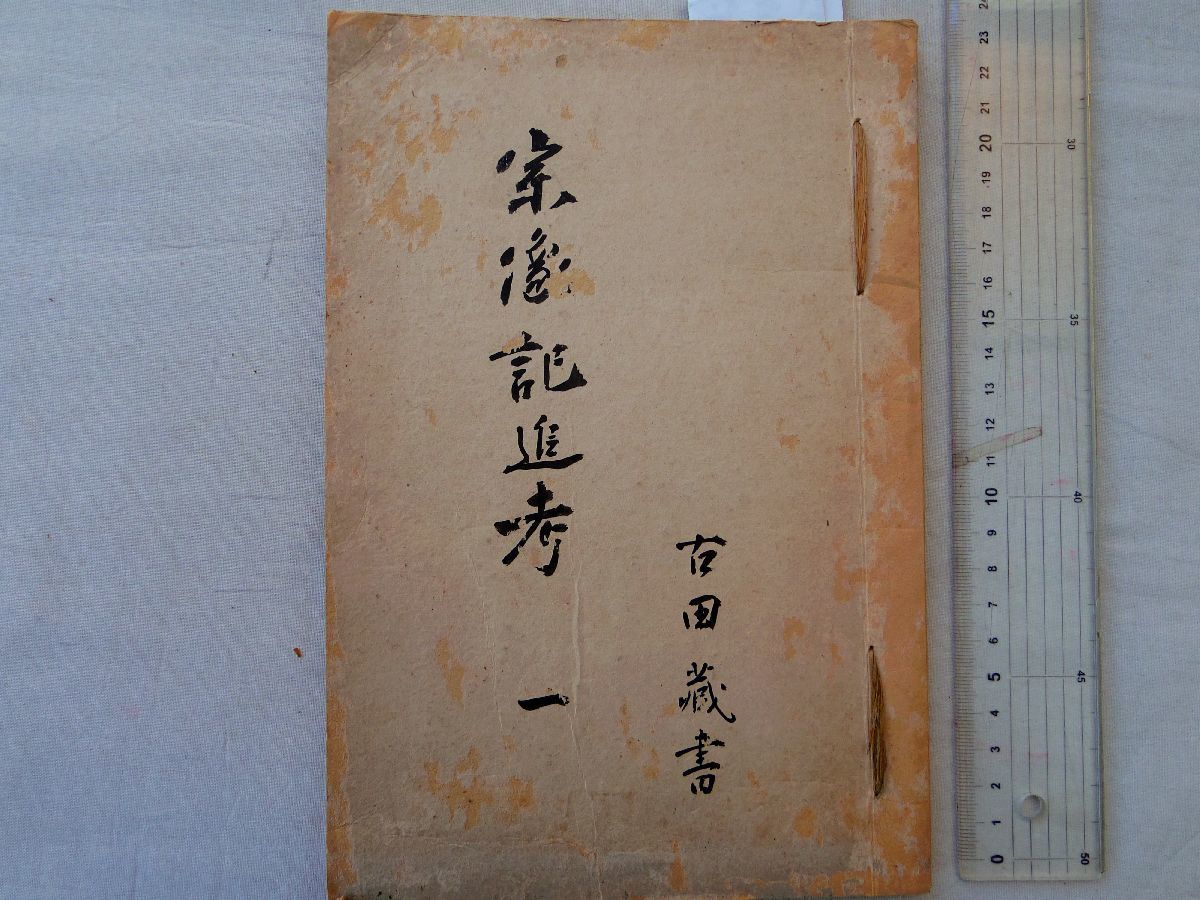 古田藏書
宗像記追考 一
0 1 2 3 4 5 6 7 8 9 10 11 12 13 14 15 16 17 18 19 20 21 22 23 24
30 35 40 45 50